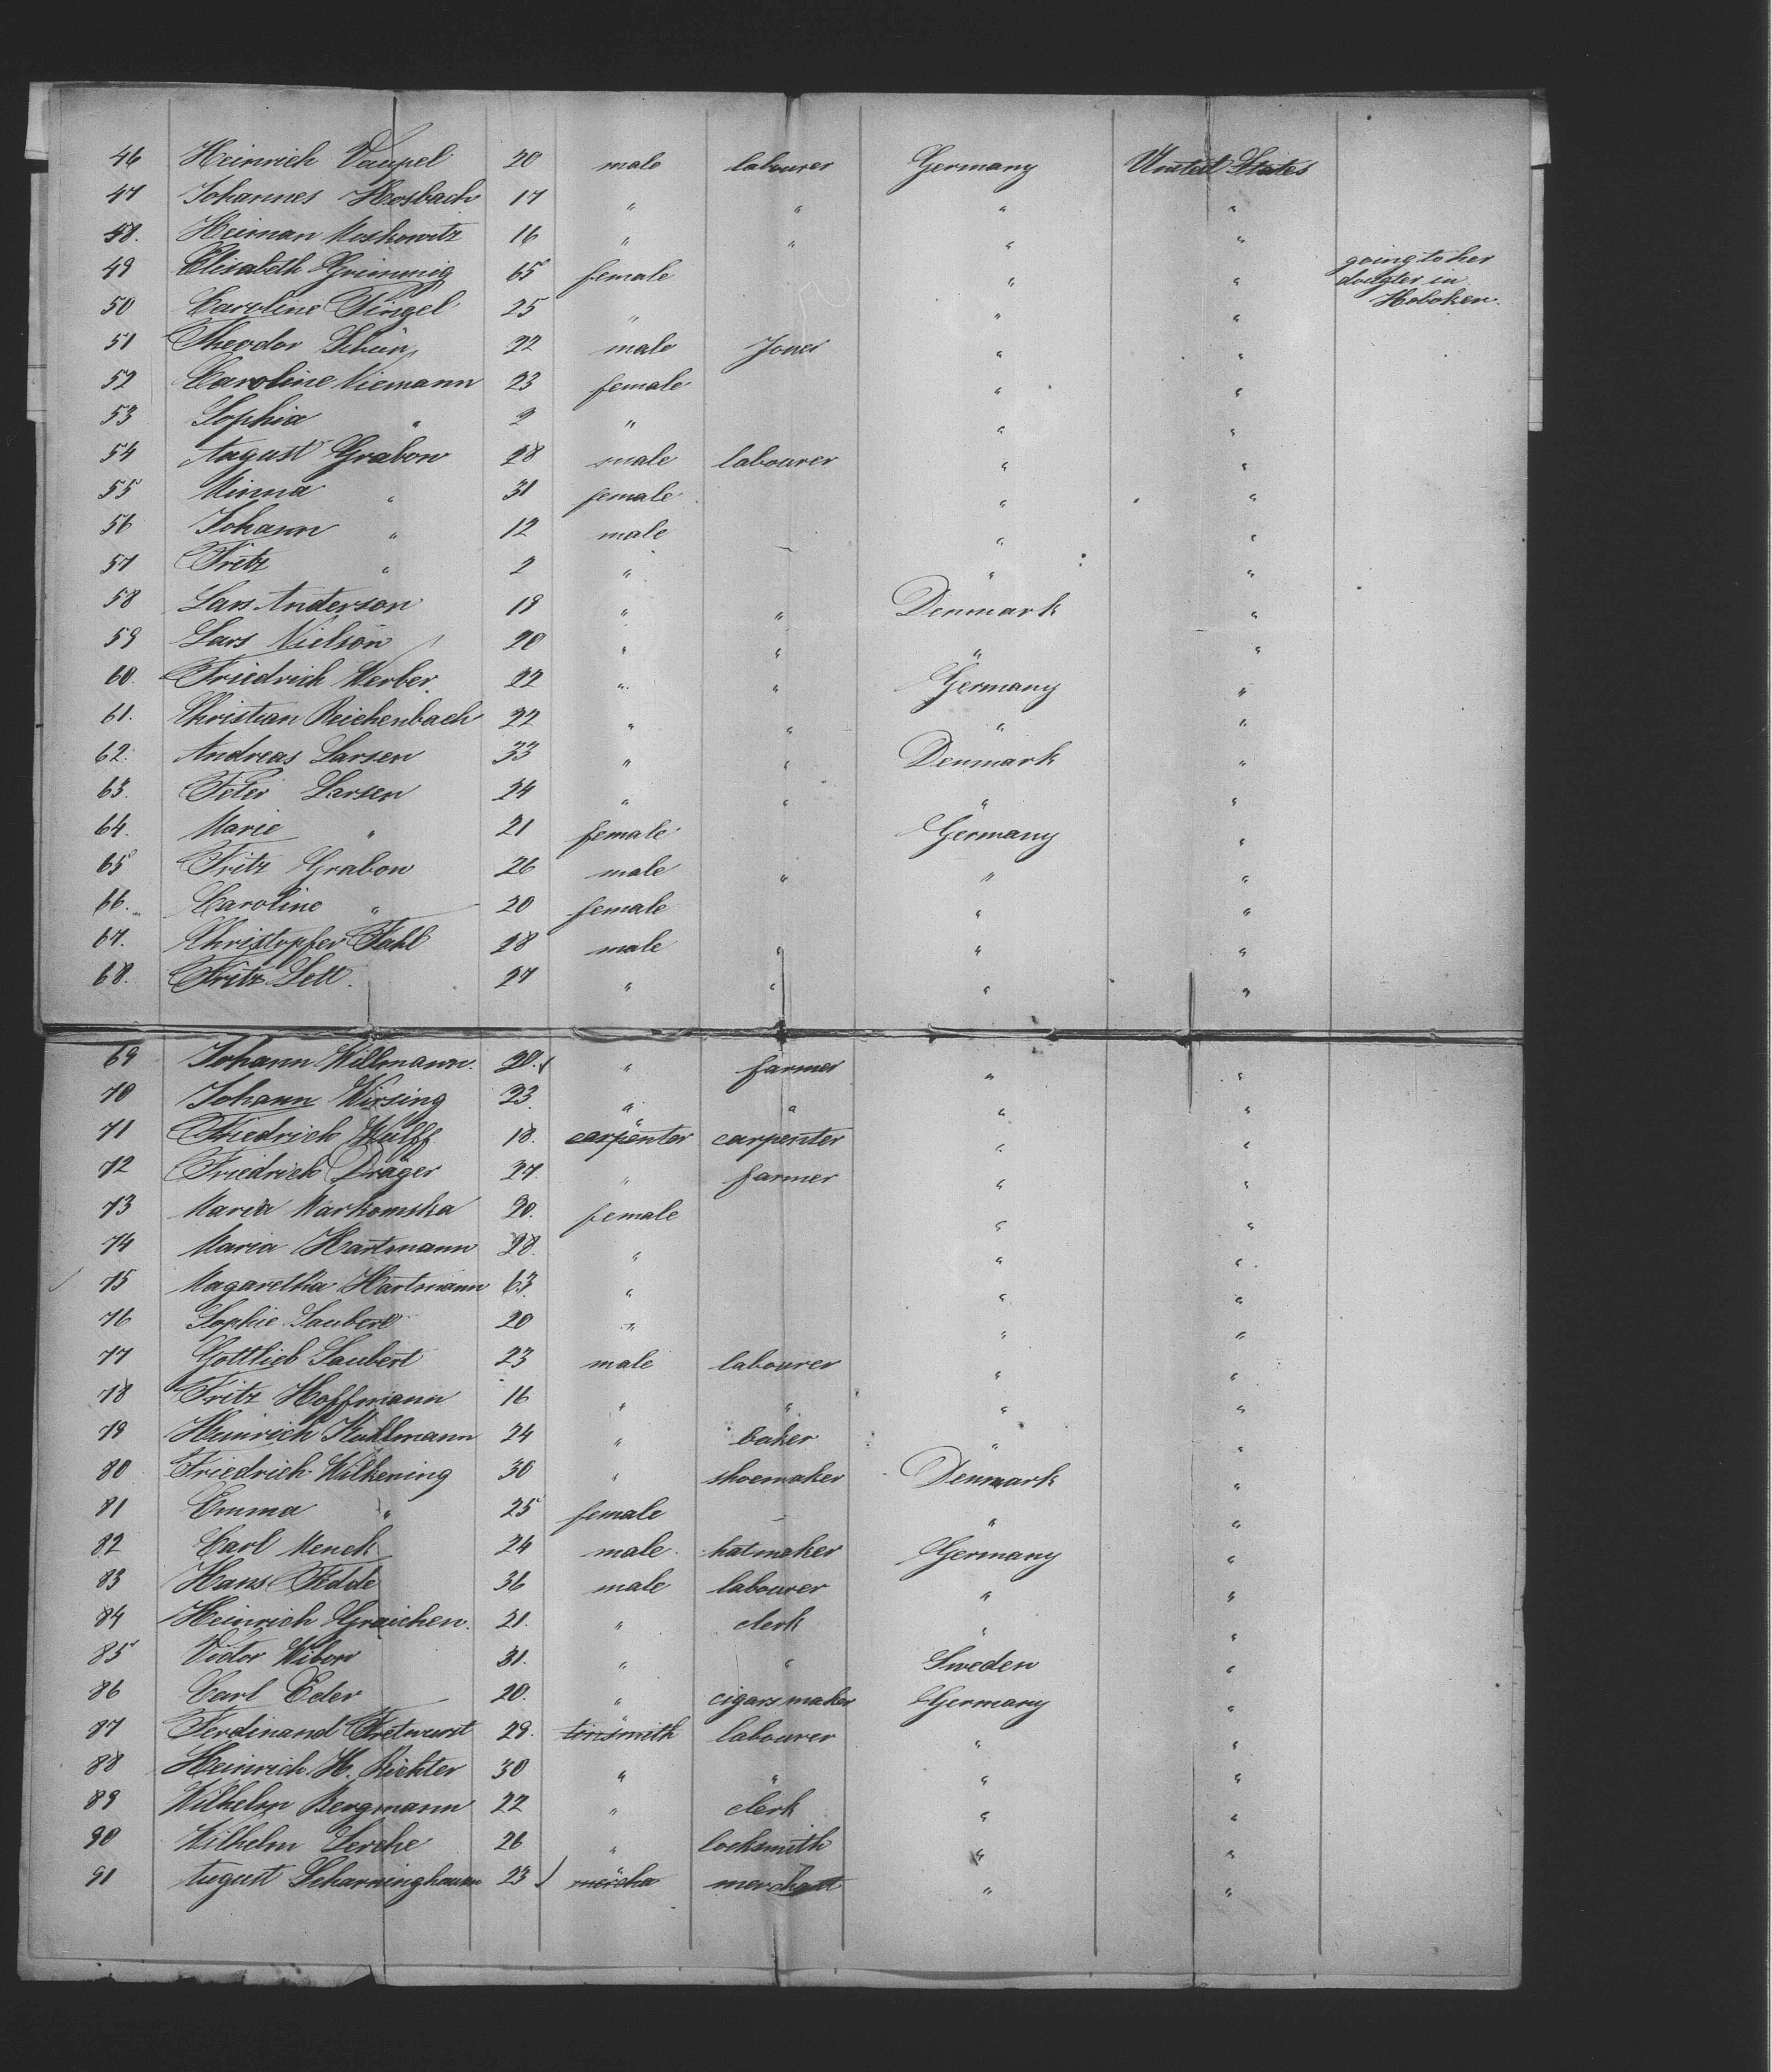 46 Heinrich Vaupel 20 male labourer Germany United States
47 Johannes Hosbach 17 " " " "
48. Heiman Moskowitz 16 " " " "
49 Elisabeth Grimmig 65 female " " going to her dougter in Hoboken.
50 Caroline Fingel 25 " " "
51 Theodor Schün 22 male Joner " "
52 Caroline Niemann 23 female " "
53 Sophia " 2 " " "
54 August Grabow 28 male labourer " "
55 Minna " 31 female " "
56 Johann " 12 male " "
57 Fritz " 2 " " "
58 Lars Anderson 19 " " Denmark "
59 Lars Nielson 20 " " " "
60. Friedrich Werber. 22 " " Germany "
61. Christian Reichenbach 22 " " " "
62. Andreas Larsen 33 " " Denmark "
63. Peter Larsen 24 " " " "
64. Marie " 21 female Germany "
65 Fritz Grabow 26 male " " "
66. Caroline " 20 female " "
67. Christopfer Fahl 28 male " " "
68. Fritz Lett. 27 " " " "
69 Johann Willmann. 20. " farmer " "
70 Johann Wirsing 23. " " " "
71 Friedrich Wulff 18. carpenter " carpenter " "
72 Friedrich Dräger 27. " farmer " "
73 Maria Markomska 20. female " "
74 Maria Hartmann 28. " " "
75 Magaretha Hartmann 63. " " "
76 Sophie Laubert 20 " " "
77 Gottlieb Laubert 23 male labourer " "
78 Fritz Hoffmann 16 " " " "
79 Heinrich Kullmann 24 " baker " "
80 Friedrich Wilkening 30 " shoemaker Denmark "
81 Emma " 25 female " "
82 Carl Menck 24 male hatmaker Germany "
83 Hans Fedde 36 male labourer " "
84 Heinrich Graichen. 21. " clerk " "
85 Victor Wibow 31. " " Sweden "
86 Carl Eder 20. " cigars maker Germany "
87 Ferdinand Fretwurst 29. tinsmith " labourer " "
88 Heinrich H. Richter 30 " " " "
89 Wilhelm Bergmann 22 " clerk " "
90 Wilhelm Lerche 26 " locksmith " "
91 August Scharninghausen 23 mercha " merchant " "